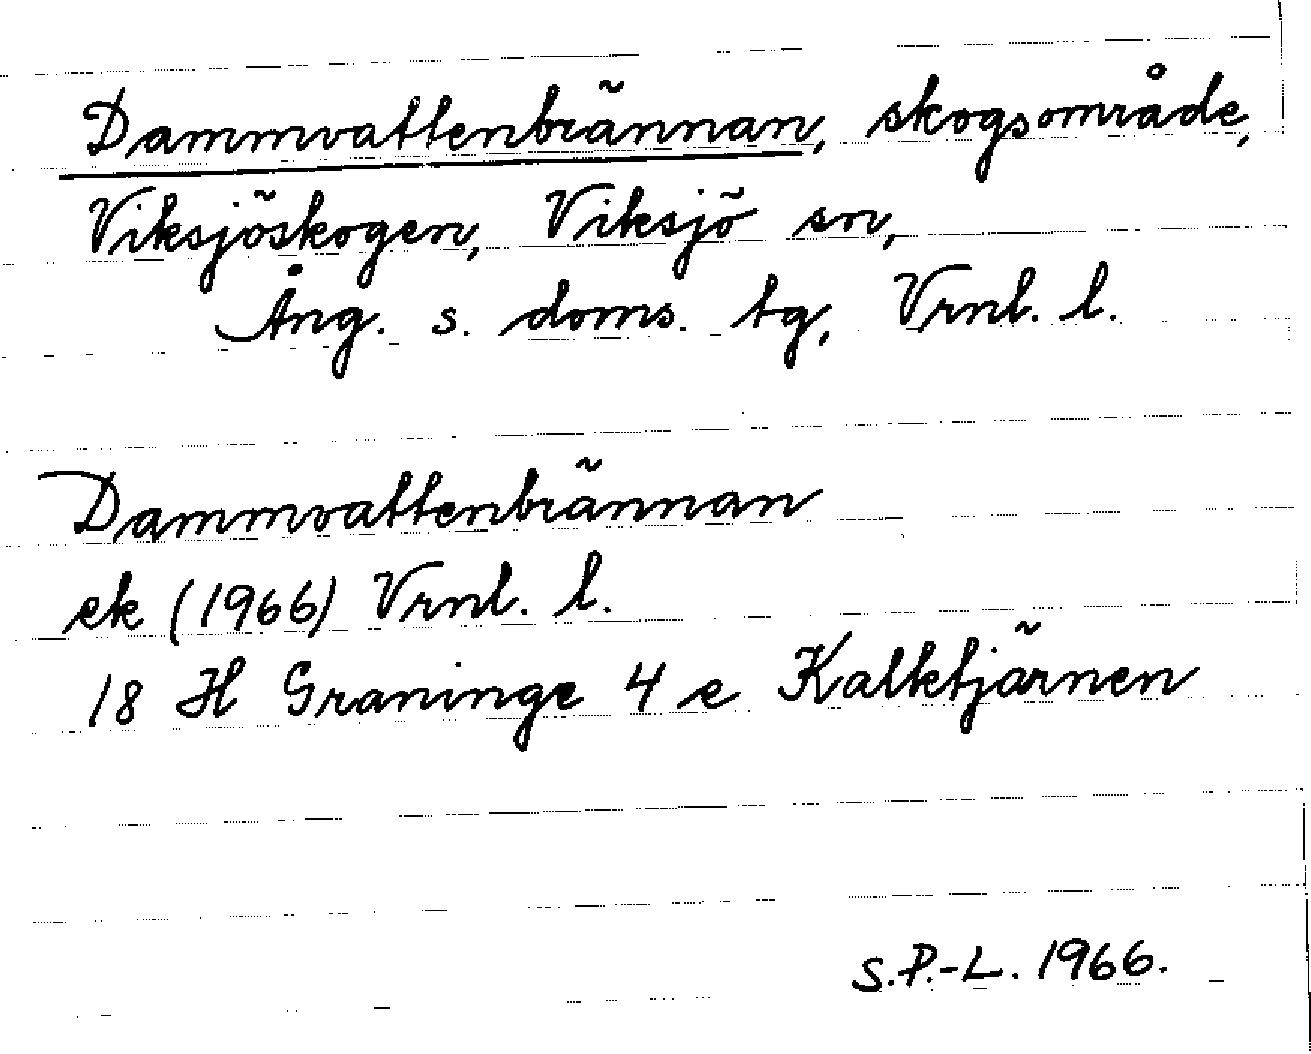 Dammvattenbrännan, skogsområde,
Viksjöskogen, Viksjö sn,
Ång. s. doms. tg, Vrnl. l.
Dammvattenbrännan
ek (1966) Vrnl. l.
18 H Graninge 4 e Kalktjärnen
S.P.-L. 1966.